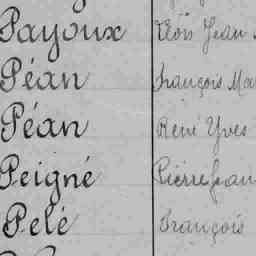 Payoux Jean
Péan François
Péan René Yves
Peigné Pierre Jean
Pelé François